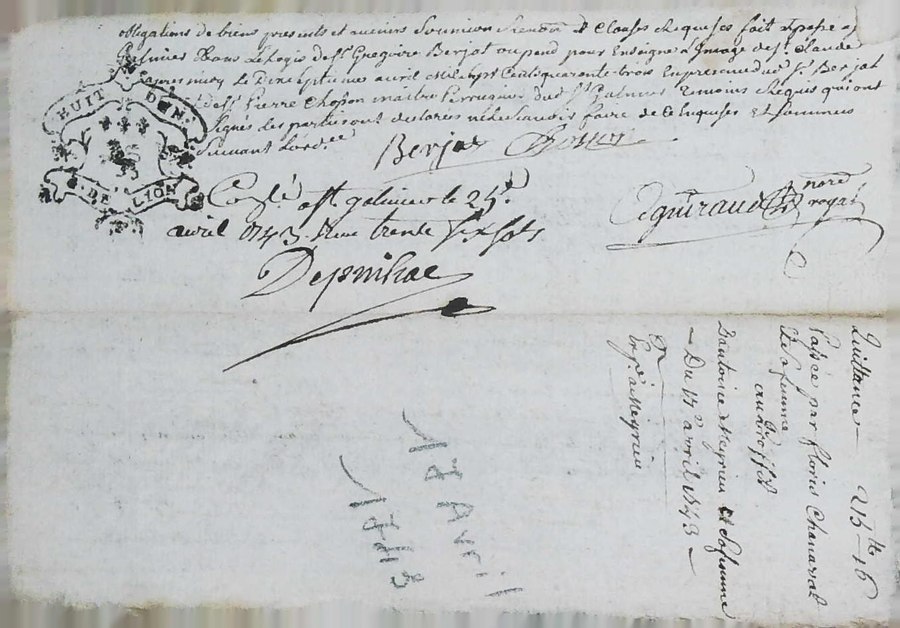 obligations de biens presents et avenirs soumissions et clauses requises fait et passé a
dans le logis de Sr Gregoire Berjat ou pend pour Enseigne l'Image de St. Claude
apres midy le avril mil sept Cent quarente-trois En presence dud. Sr. Berjat
et de Sr Pierre Chosson maître Perruquier dud. St Galmier temoins requis qui ont
signés les parties ont declares ne le scavoir faire de ce Enquises et sommées
suivant l'ord.ce
HUIT DEN.
DE LION
Berjat Chosson
Conlé a St galmier le 25e.
avril 1743 Reçu trente six sols
Deguiraud nore
royal
Quittance 215 tt 16
Passée par
Et sa femme
au proffit
D'antoine Meyrieu Et sa femme
Du 17e avril 1743
Exp.é a Meyrieu
18 Avril
1743